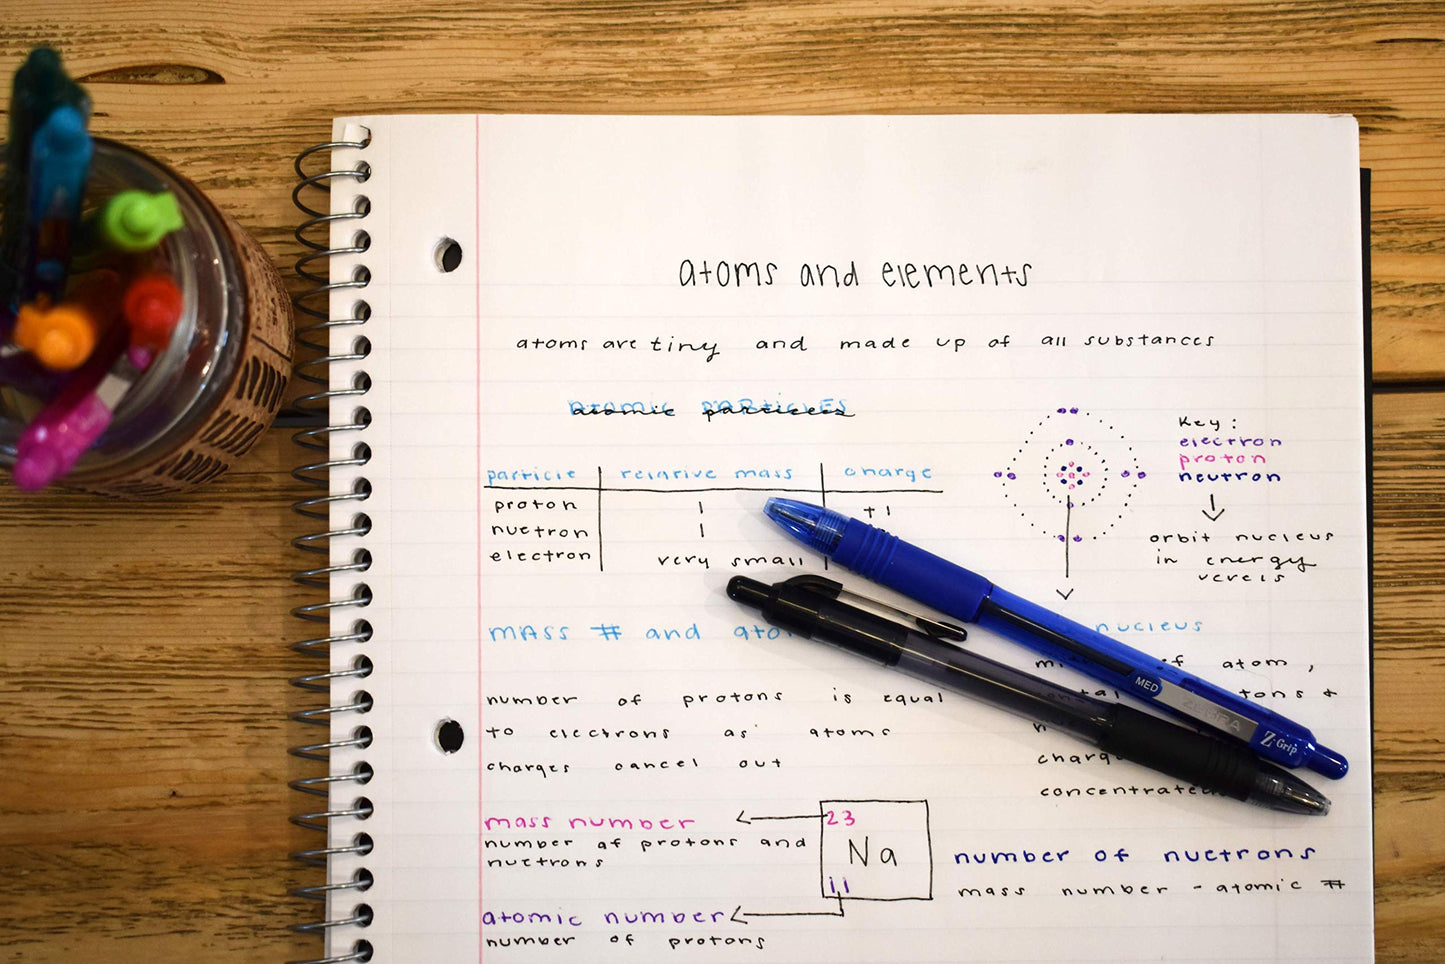 atoms and elements
atoms are tiny and made up of all substances
atomic particles
particle relative mass charge
proton 1 +1
nuetron 1
electron very small
Key:
electron
proton
neutron
orbit nucleus
in energy
levels
mass # and
nucleus
of atom,
charg
concentrated
number of protons is equal
to electrons as atoms
charges cancel out
mass number
number of protons and
nuetrons
23
Na
11
atomic number
number of protons
number of nuetrons
mass number - atomic #
MED
ZEBRA
Z-Grip